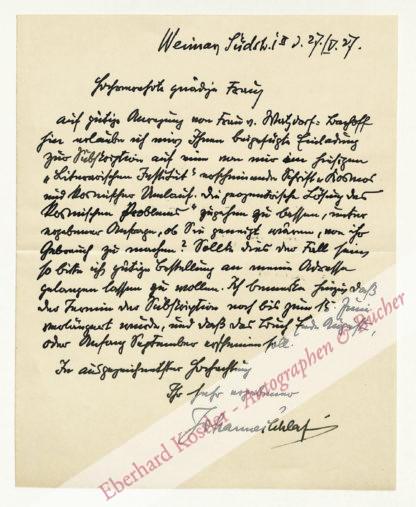 Weimar Südstr. 18 d. 27./V. 27.
Hochverehrte gnädige Frau,
auf gütige Anregung von Frau v. Watzdorf-Bachoff
hin erlaube ich mir, Ihnen beigefügte Einladung
zur Subskription auf eine von mir im hiesigen
„Literarischen Institut" erscheinende Schrift „Kosmos
und kosmischer Umlauf. Die geozentrische Lösung des
kosmischen Problems" zugehen zu lassen, unter
ergebener Anfrage, ob Sie geneigt wären, von ihr
Gebrauch zu machen? Sollte dies der Fall sein,
so bitte ich gütige Bestellung an meine Adresse
gelangen lassen zu wollen. Ich bemerke hinzu, daß
der Termin der Subskription noch bis zum 15. Juni
verlängert wurde, und daß das Buch Ende August,
oder Anfang September erscheinen soll.
In ausgezeichneter Hochachtung
Ihr sehr ergebener
Johannes Schlaf
Eberhard Köstler - Autographen & Bücher